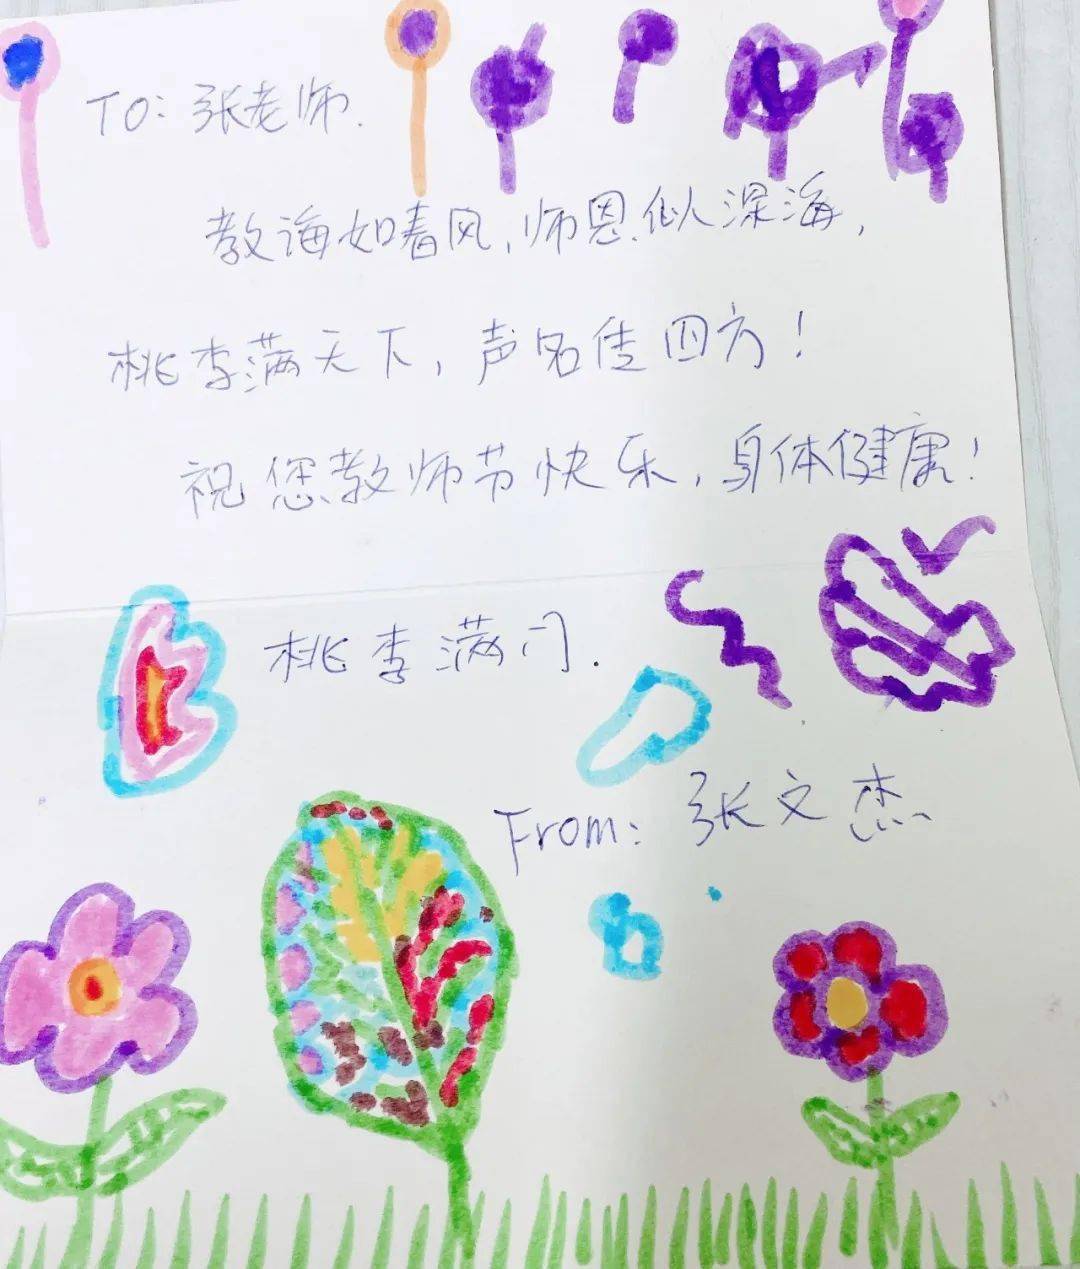 TO: 张老师.
教诲如春风,师恩似深海,
桃李满天下,声名传四方!
祝您教师节快乐,身体健康!
桃李满门.
From: 张文杰